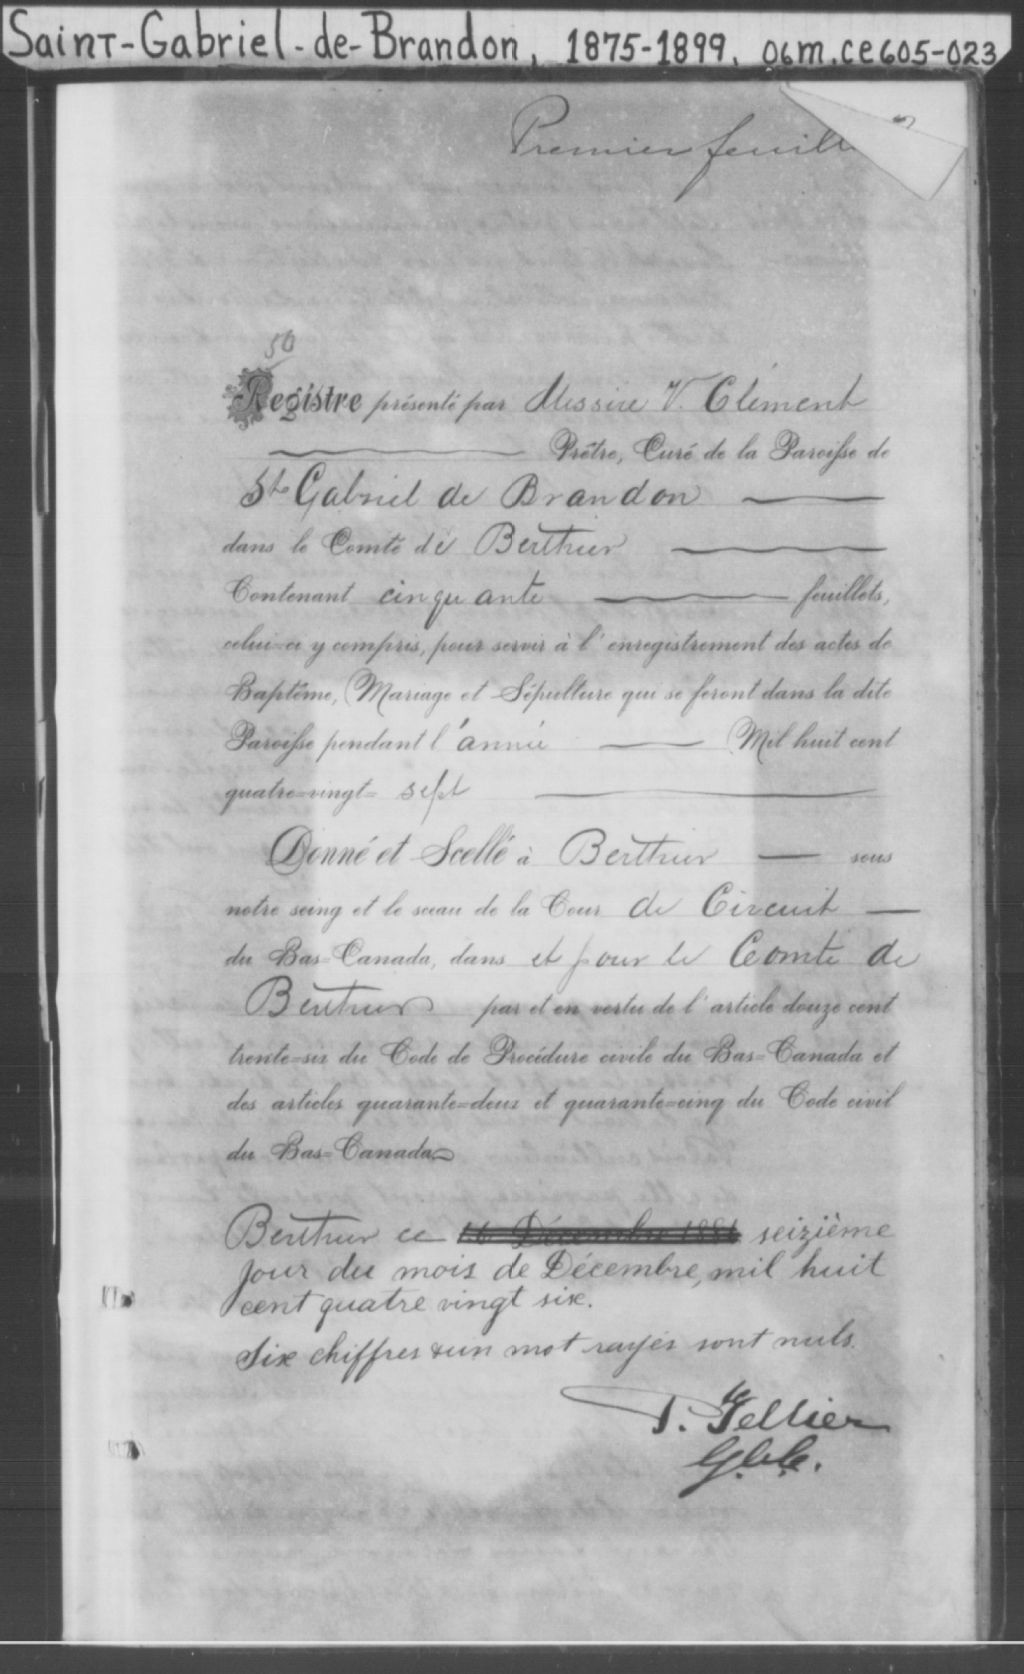 Saint-Gabriel-de-Brandon, 1875-1899. 06m.ce605-023
Premier feuill
50
Registre présenté par Messire V. Clément
Prêtre, Curé de la Paroisse de
St Gabriel de Brandon
dans le Comté de Berthier
Contenant cinquante feuillets,
celui-ci y compris, pour servir à l'enregistrement des actes de
Baptême, Mariage et Sépulture qui se feront dans la dite
Paroisse pendant l'année Mil huit cent
quatre-vingt-sept
Donné et Scellé à Berthier sous
notre seing et le sceau de la Cour de Circuit
du Bas-Canada, dans et pour le Comté de
Berthier par et en vertu de l'article douze cent
trente-six du Code de Procédure civile du Bas-Canada et
des articles quarante-deux et quarante-cinq du Code civil
du Bas-Canada
Berthier ce 16 Décembre 1886 seizième
jour du mois de Décembre, mil huit
cent quatre vingt six.
Six chiffres & un mot rayés sont nuls.
P. Tellier
G.C.C.